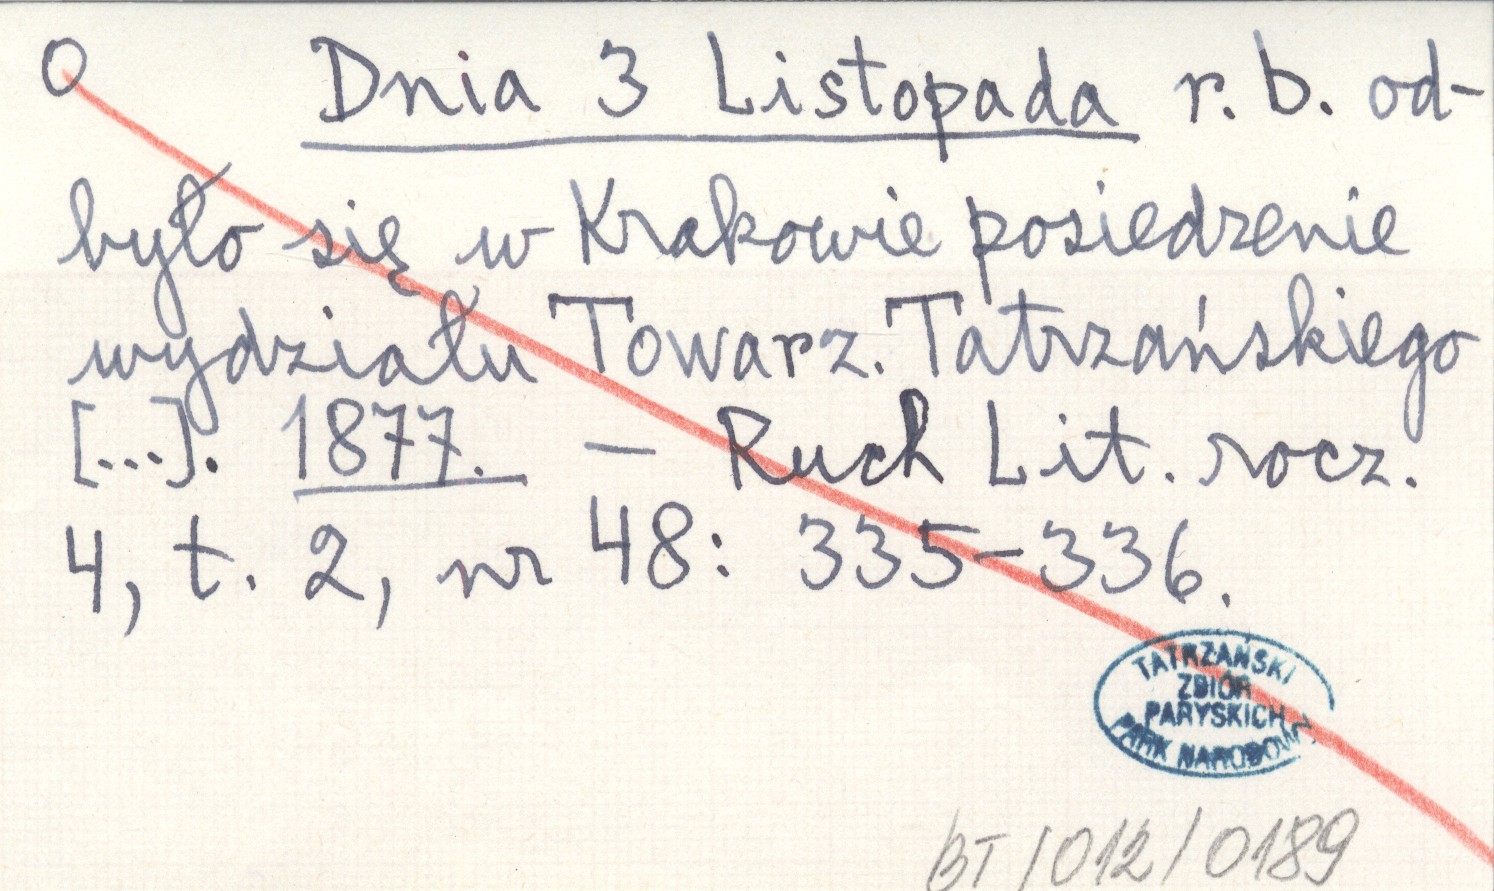 O Dnia 3 Listopada r. b. od-
było się w Krakowie posiedzenie
wydziału Towarz. Tatrzańskiego
[...]. 1877. — Ruch Lit. rocz.
4, t. 2, nr 48: 335-336.
TATRZAŃSKI
ZBIÓR
PARYSKICH
PARK NARODOWY
BT/012/0189